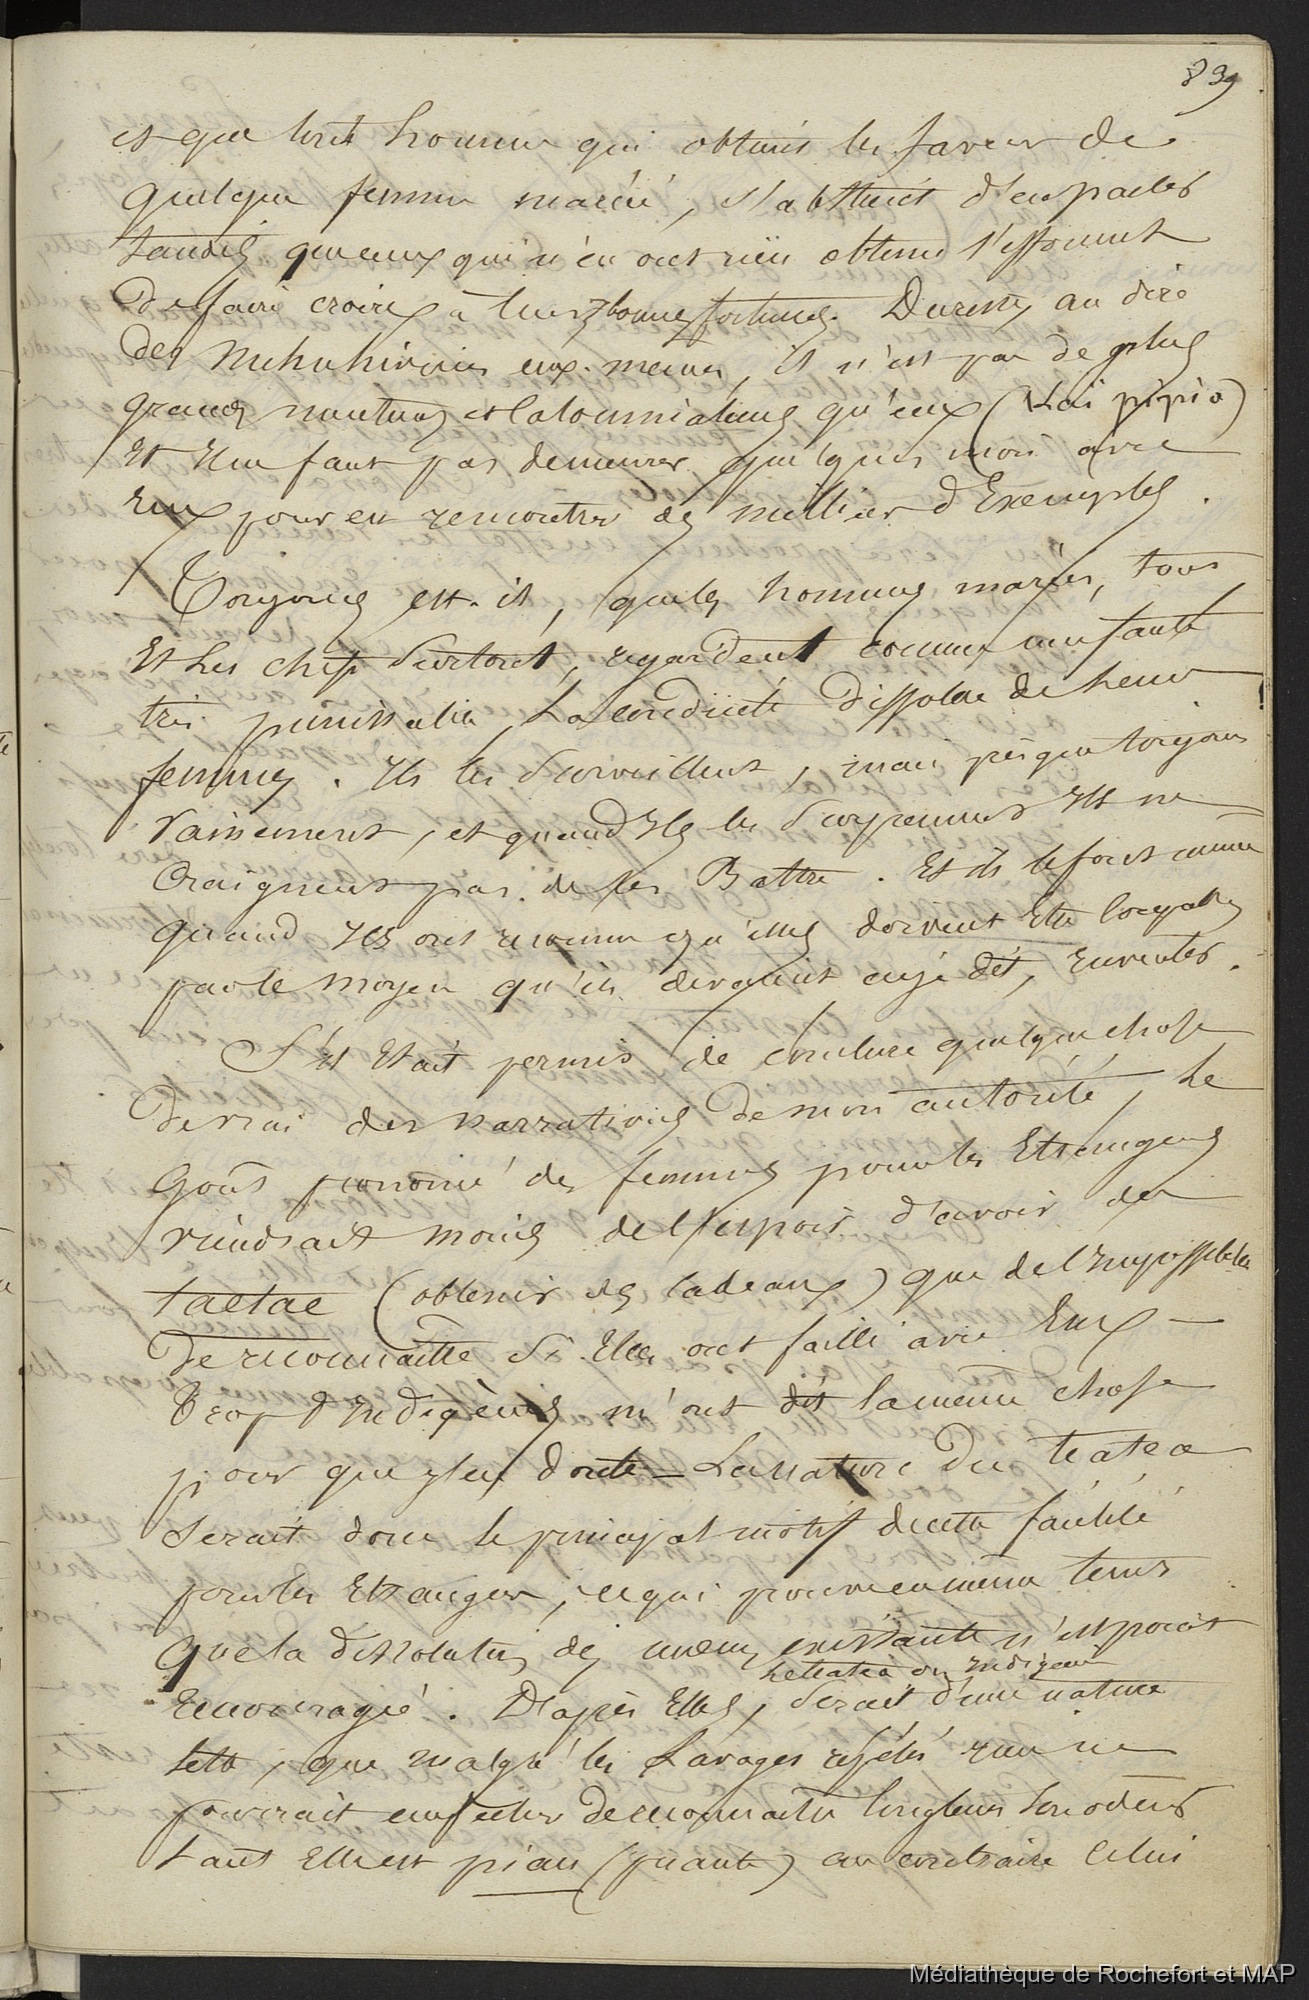 839
et que tout homme qui obtient les faveurs de
quelque femme mariée, s'abstient d'en parler
tandis que ceux qui n'en ont rien obtenu s'efforcent
de faire croire à leurs bonnes fortunes. Du reste, au dire
des Nukuhiviens eux-mêmes, il n'est pas de plus
grands menteurs et calomniateurs qu'eux (Koi pipio)
Et il ne faut pas demeurer quelques mois avec
eux pour en rencontrer des milliers d'Exemples.
Toujours est-il, que les hommes mariés, tous
Et les chefs surtout, regardent comme une faute
très punissable la conduite dissolue de leurs
femmes. Ils les surveillent, mais presque toujours
vainement, et quand ils les surprennent ils ne
craignent pas de les Battre. Et ils le font même
quand ils ont reconnu qu'elles doivent être coupables
par le moyen qu'ils ai-je dit, inventer.
S'il était permis de conclure quelque chose
de vrai des narrations de mon autorité, le
goût prononcé des femmes pour les Etrangers
viendrait moins de l'espoir d'avoir des
taetae (obtenir des cadeaux) que de l'impossibilité
de reconnaître si Elles ont failli avec Eux —
Trop d'indigènes m'ont dit la même chose
pour que j'en doute — La nature du teatea
serait donc le principal motif de cette facilité
pour les Etrangers, ce qui prouve en même tems
que la dissolution des mœurs existante n'est point
le teatea des indigènes
encouragée. D'après Elles, serait d'une nature
telle, que malgré les Lavages répétés rien ne
pourrait empêcher de reconnaître longtems son odeur
tant Elle est piau (puante) au contraire celui
Médiathèque de Rochefort et MAP